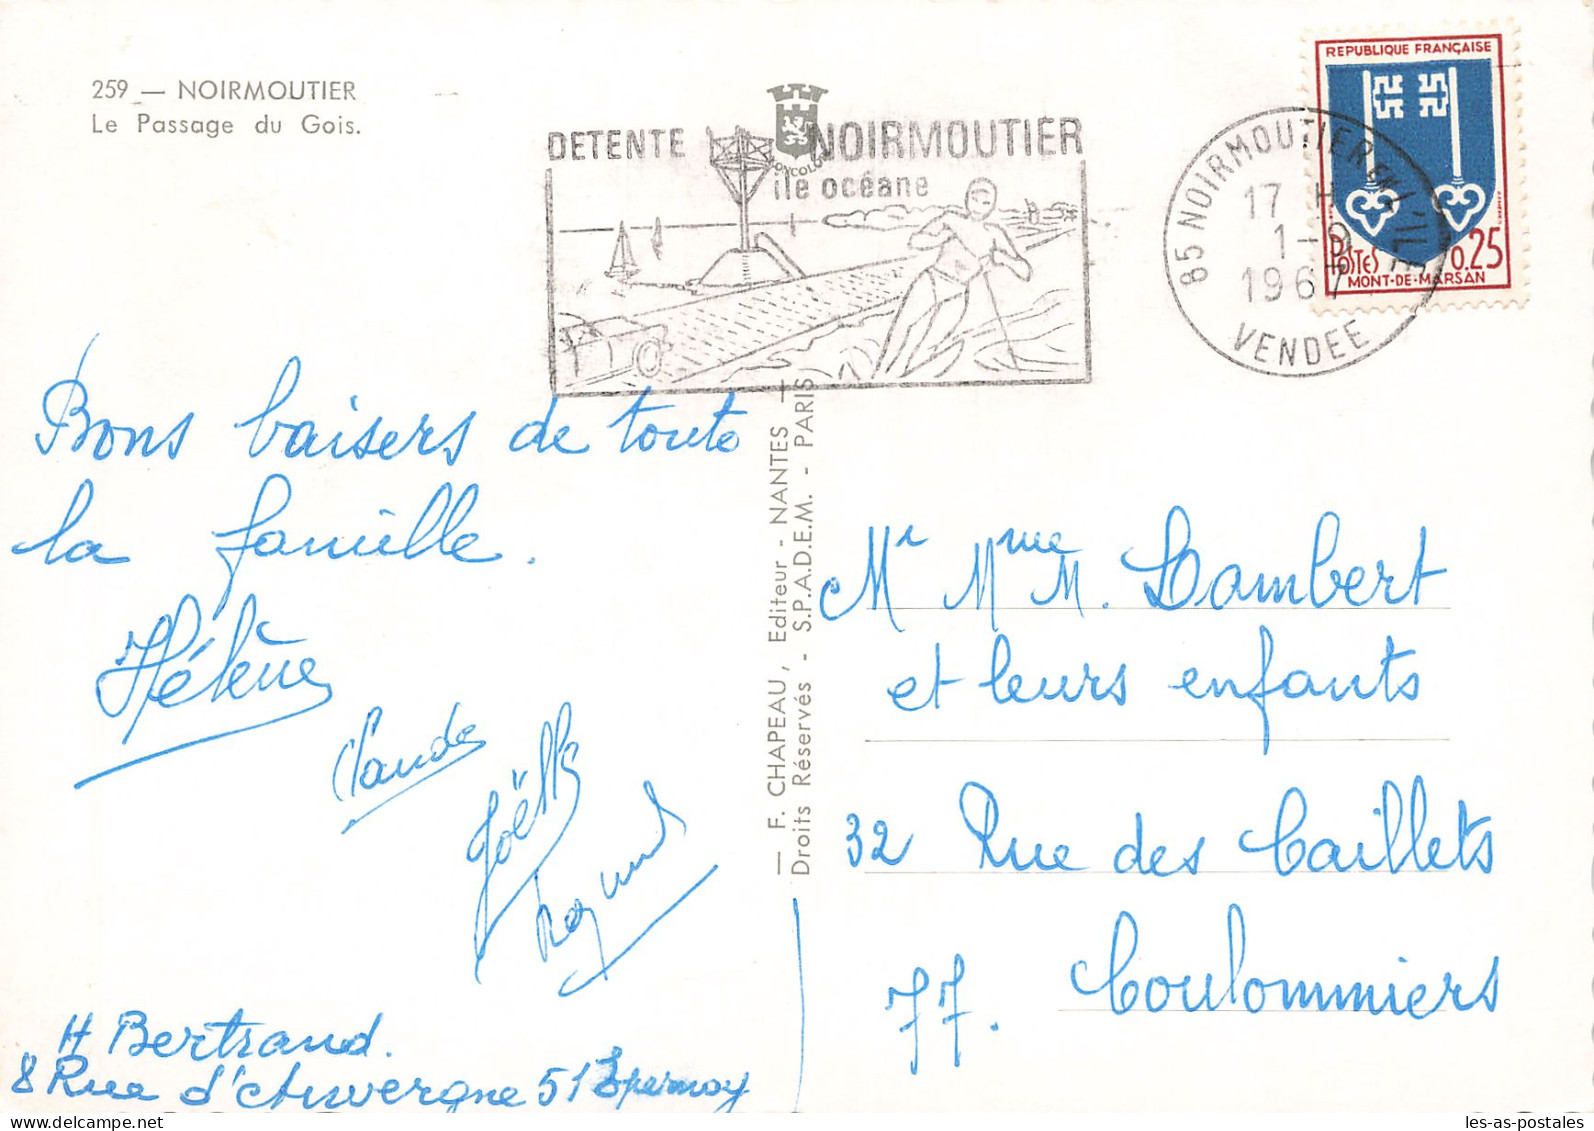 259 — NOIRMOUTIER
Le Passage du Gois.
DETENTE NOIRMOUTIER
île océane
85 NOIRMOUTIER EN L'ILE
17 H
1-9
1967
VENDEE
REPUBLIQUE FRANÇAISE
POSTES 0,25
MONT-DE-MARSAN
Bons baisers de toute
la famille.
Hélène
Claude
Joëlle
Raymond
H Bertrand.
8 Rue d'Auvergne 51 Epernay
— F. CHAPEAU, Editeur - NANTES —
Droits Réservés - S.P.A.D.E.M. - PARIS
Mr Mme M. Lambert
et leurs enfants
32 Rue des Caillets
77. Coulommiers
les-as-postales